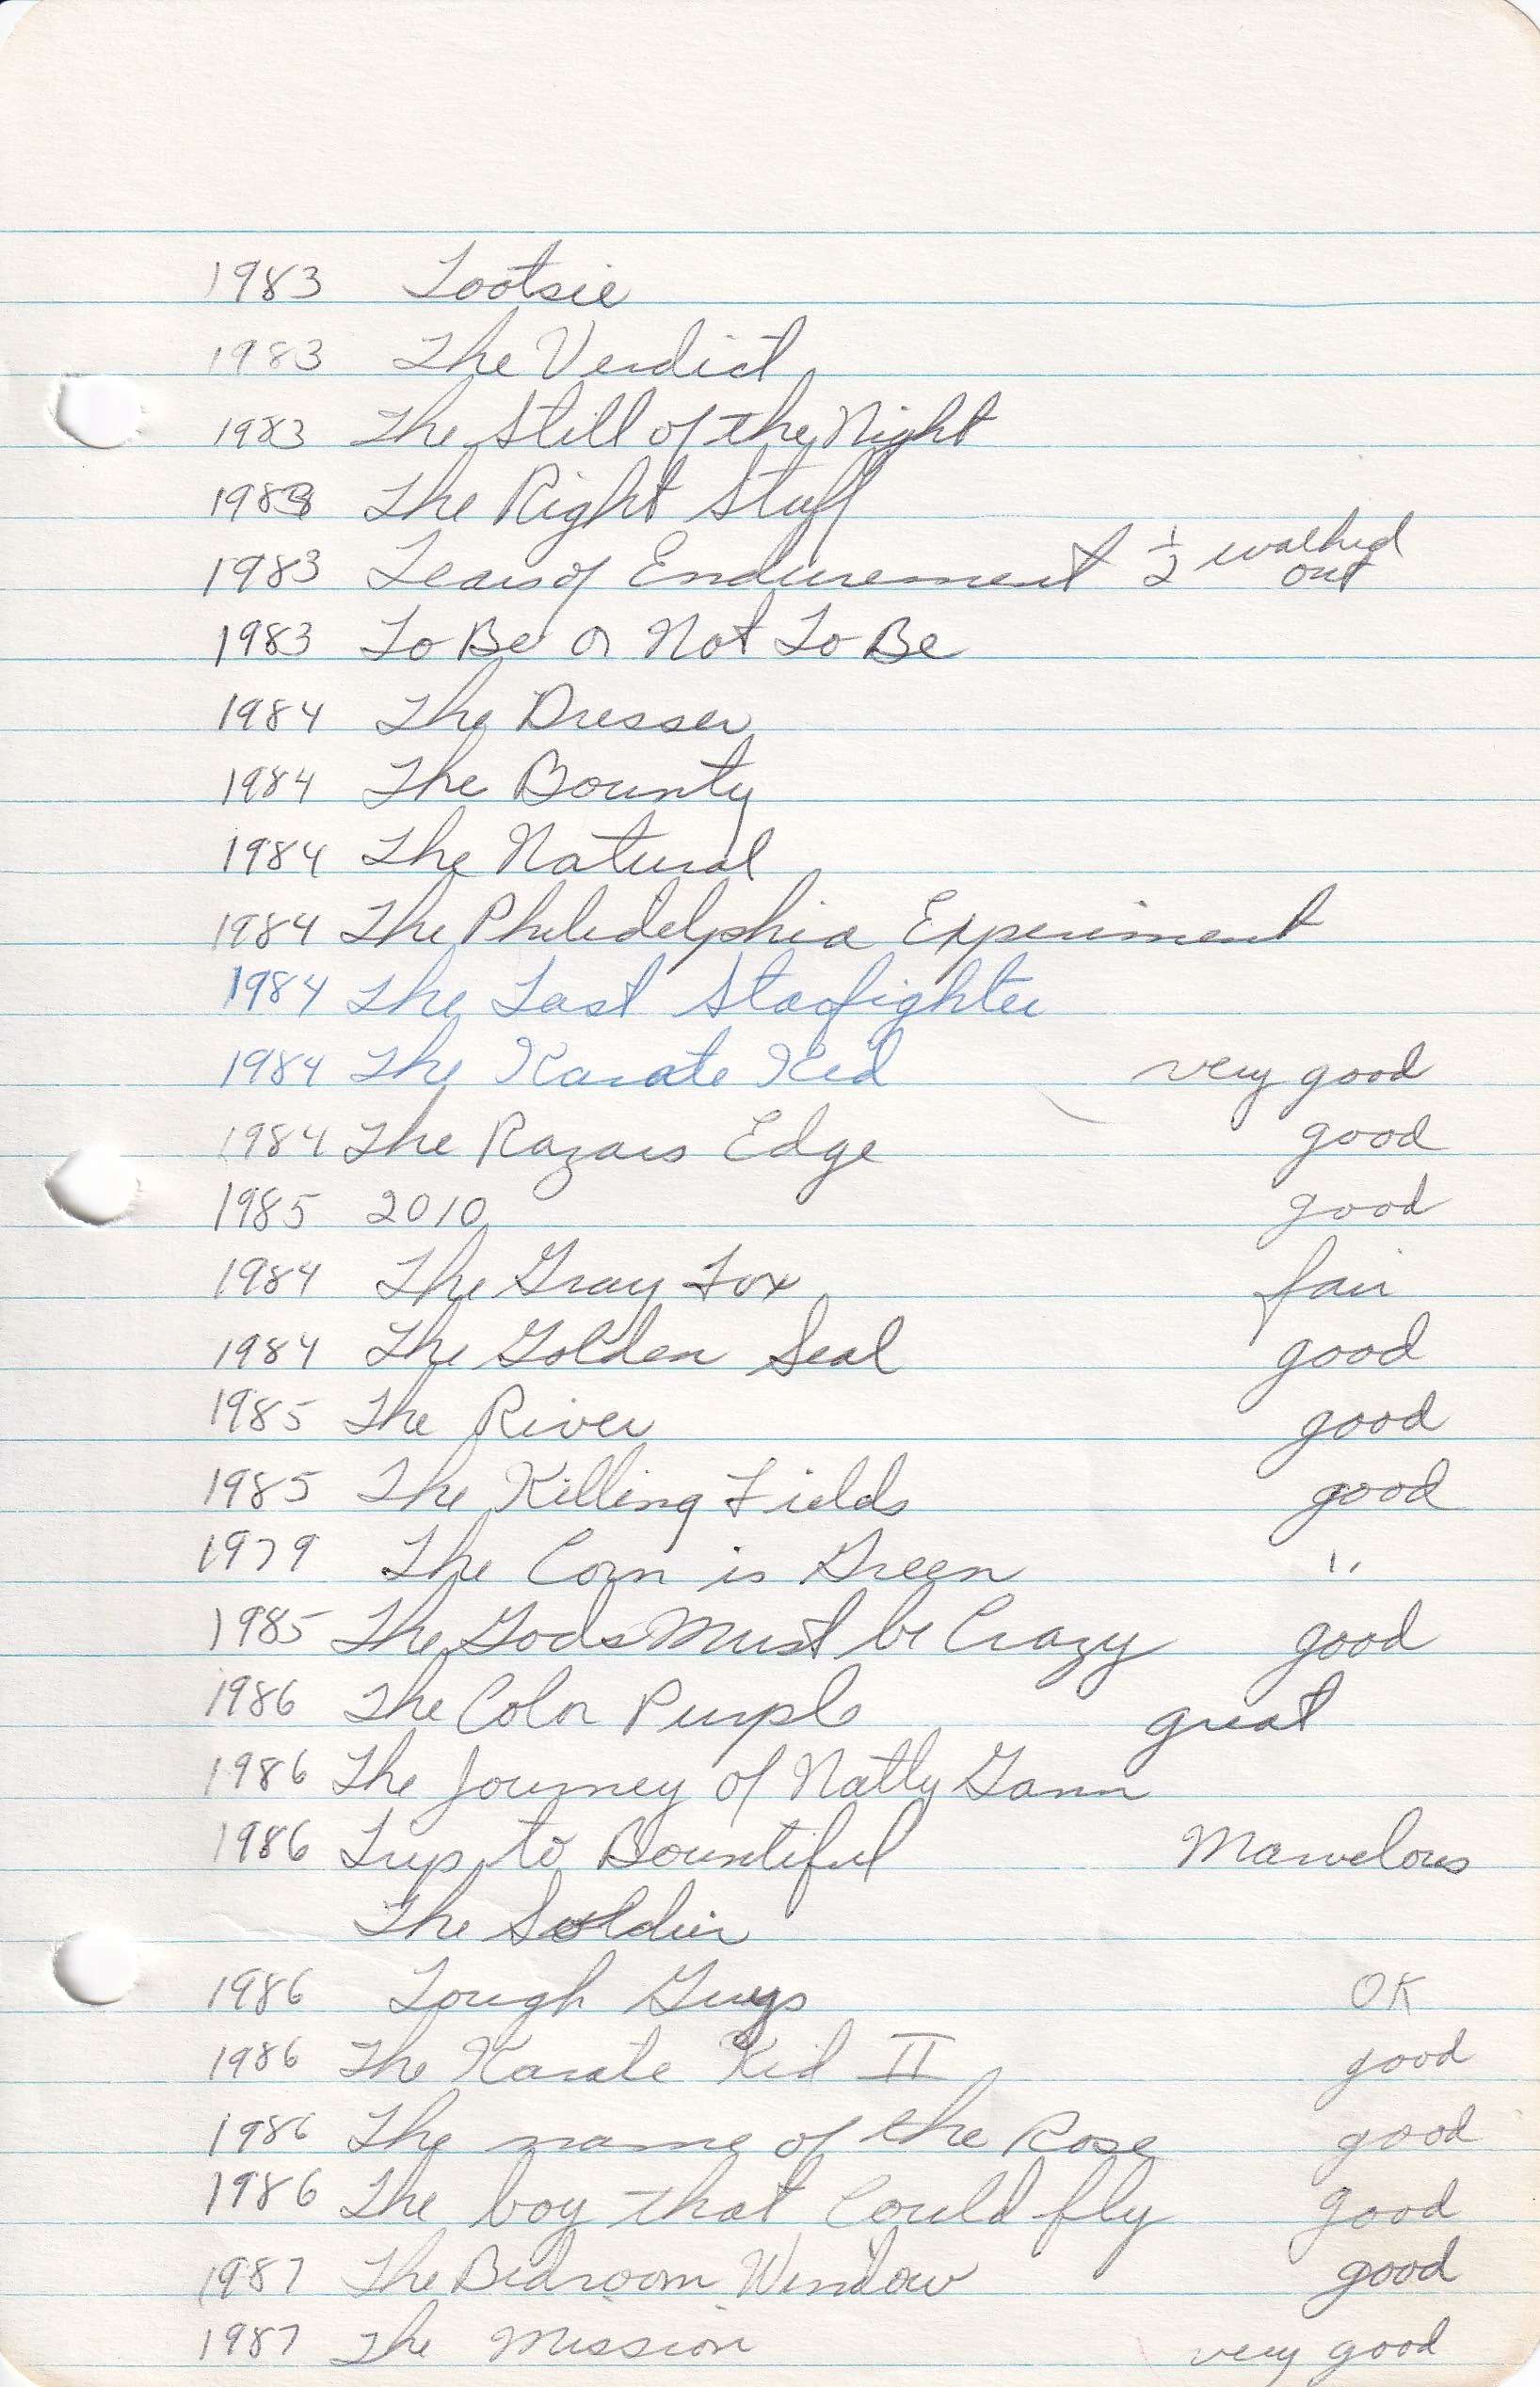 1983 Tootsie
1983 The Verdict
1983 The Still of the Night
1983 The Right Stuff
1983 Tears of Endurement ½ walked out
1983 To Be or Not To Be
1984 The Dresser
1984 The Bounty
1984 The Natural
1984 The Philidelphia Experiment
1984 The Last Starfighter
1984 The Karate Kid very good
1984 The Razars Edge good
1985 2010 good
1984 The Gray Fox fair
1984 The Golden Seal good
1985 The River good
1985 The Killing Fields good
1979 The Corn is Green "
1985 The Gods Must be Crazy good
1986 The Color Purple great
1986 The Journey of Natty Gann
1986 Trip to Bountiful Marvelous
The Soldier
1986 Tough Guys OK
1986 The Karate Kid II good
1986 The name of the Rose good
1986 The boy that Could fly good
1987 The Bedroom Window good
1987 The Mission very good